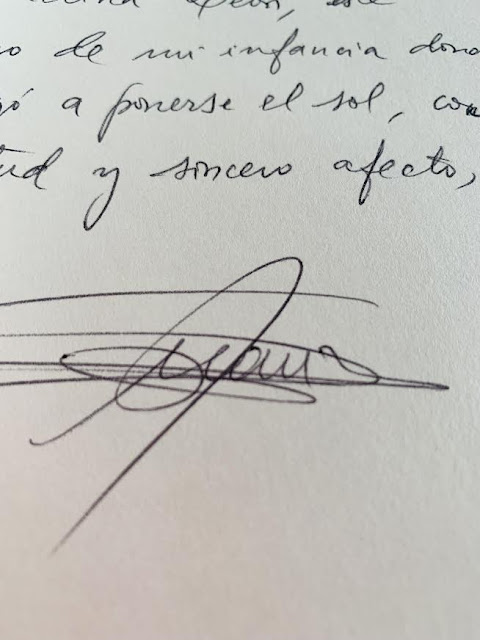 León, este
o de mi infancia dond
ó a ponerse el sol, con
tud y sincero afecto,